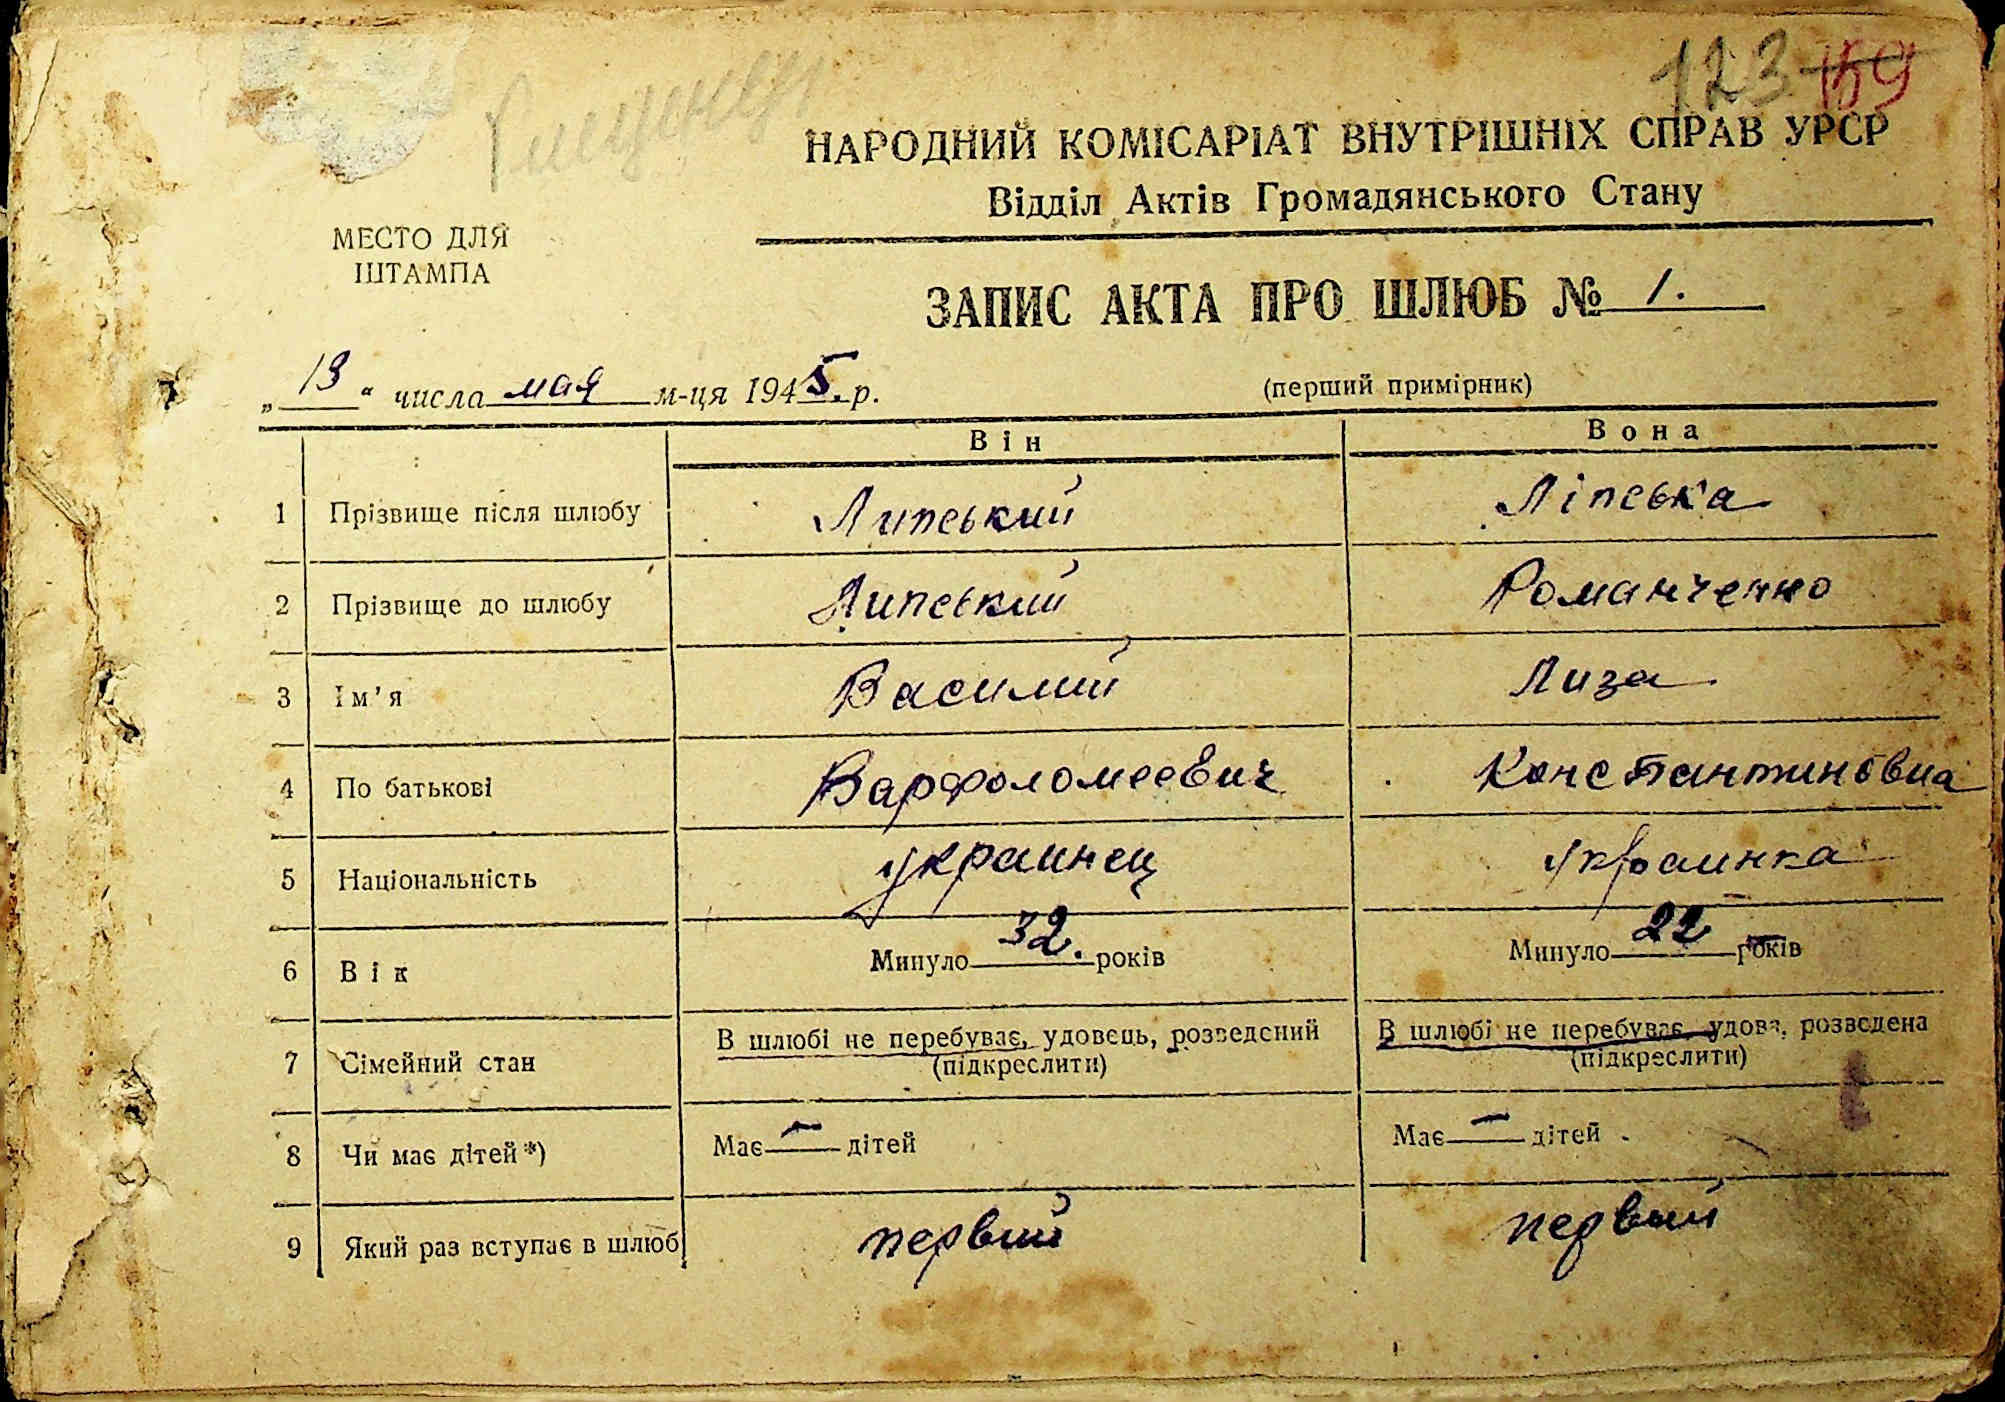 123 159
НАРОДНИЙ КОМІСАРІАТ ВНУТРІШНІХ СПРАВ УРСР
Відділ Актів Громадянського Стану
МЕСТО ДЛЯ
ШТАМПА
ЗАПИС АКТА ПРО ШЛЮБ № 1.
„13“ числа мая м-ця 1945. р.
(перший примірник)
Він Вона
1 Прізвище після шлюбу Липський Ліпська
2 Прізвище до шлюбу Липський Романченко
3 Ім'я Василий Лиза
4 По батькові Варфоломеевич Константиновна
5 Національність украинец украинка
6 Вік Минуло 32. років Минуло 22 років
7 Сімейний стан В шлюбі не перебуває, удовець, розведений В шлюбі не перебуває, удова, розведена
(підкреслити) (підкреслити)
8 Чи має дітей*) Має — дітей Має — дітей
9 Який раз вступає в шлюб первый первый